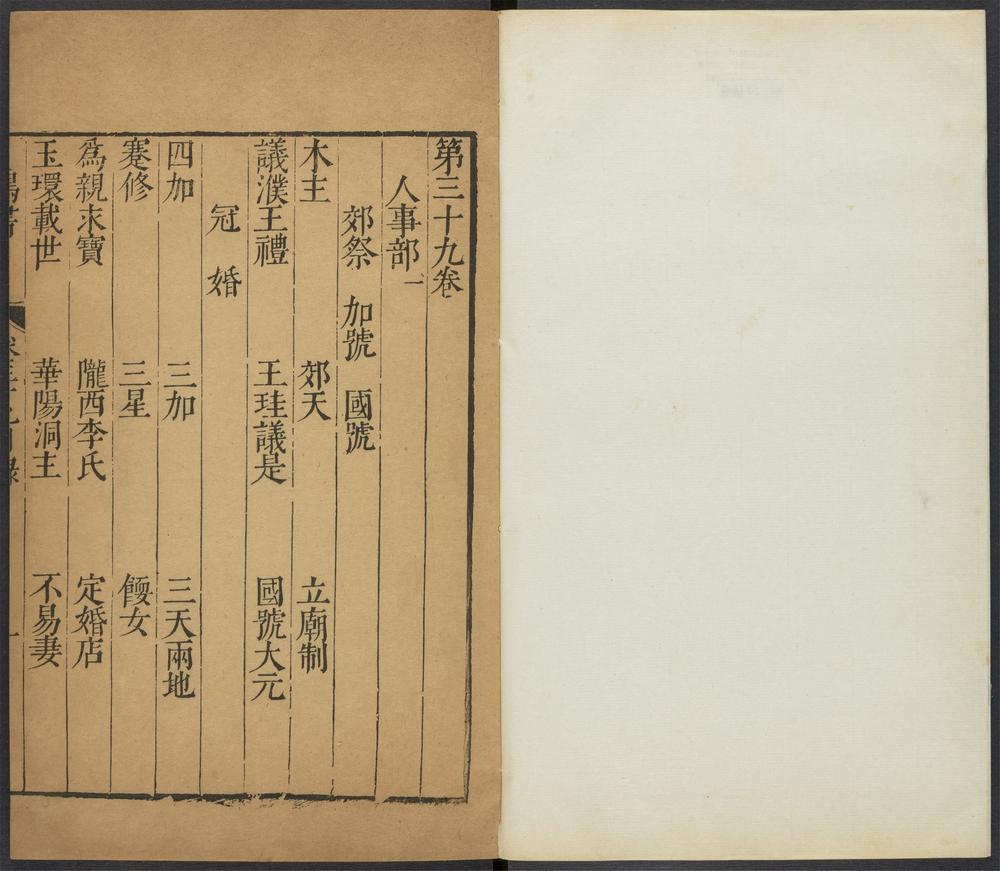 第三十九卷
人事部一
郊祭　加號　國號
木主　郊天　立廟制
議濮王禮　王珪議是　國號大元
冠　婚
四加　三加　三天兩地
蹇修　三星　餪女
爲親求寶　隴西李氏　定婚店
玉環載世　華陽洞主　不易妻